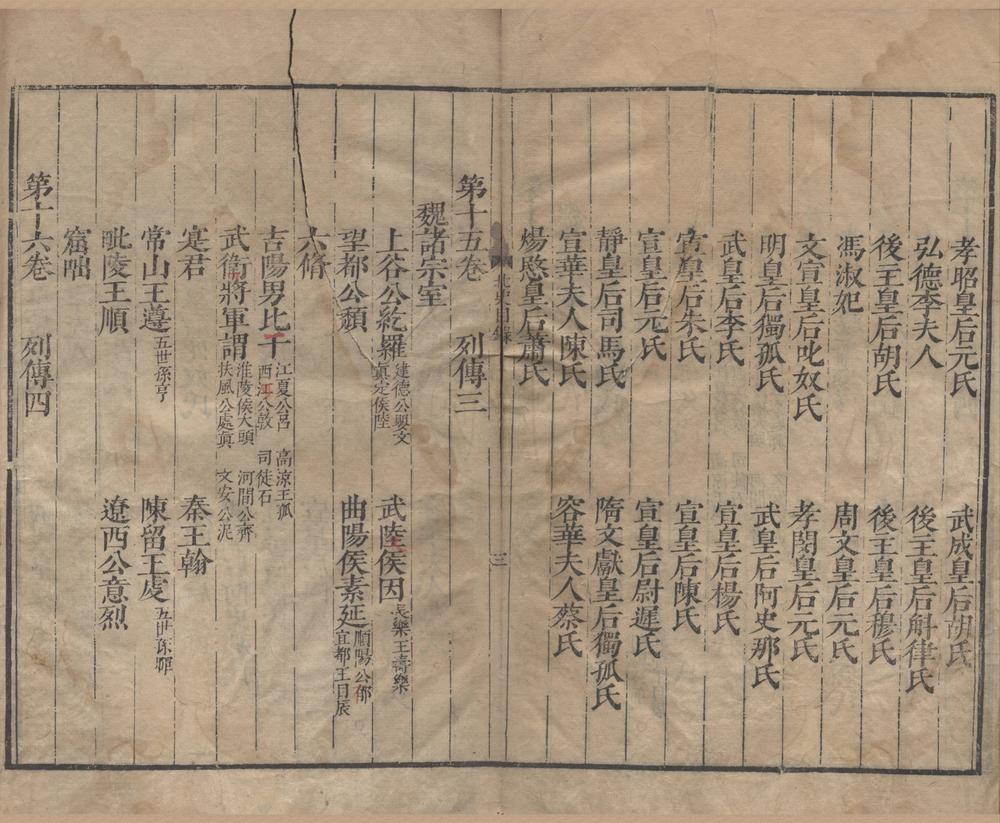 孝昭皇后元氏　武成皇后胡氏
弘德李夫人　後主皇后斛律氏
後主皇后胡氏　後主皇后穆氏
馮淑妃　周文皇后元氏
文宣皇后叱奴氏　孝閔皇后元氏
明皇后獨孤氏　武皇后阿史那氏
武皇后李氏　宣皇后楊氏
宣皇后朱氏　宣皇后陳氏
宣皇后元氏　宣皇后尉遲氏
靜皇后司馬氏　隋文獻皇后獨孤氏
宣華夫人陳氏　容華夫人蔡氏
煬愍皇后蕭氏
北史目錄　三
第十五卷　列傳三
魏諸宗室
上谷公紇羅　建德公嬰文　真定侯陸　武陸侯因　長樂王壽樂
望都公頹　曲陽侯素延　順陽公郁　宜都王目辰
六脩
吉陽男比干　江夏公呂　西江公敦　高涼王孤　司徒石
武衛將軍謂　淮陵侯大頭　扶風公處真　河間公齊　文安公泥
寔君　秦王翰
常山王遵　五世孫亨　陳留王虔　五世孫暉
毗陵王順　遼西公意烈
窟咄
第十六卷　列傳四